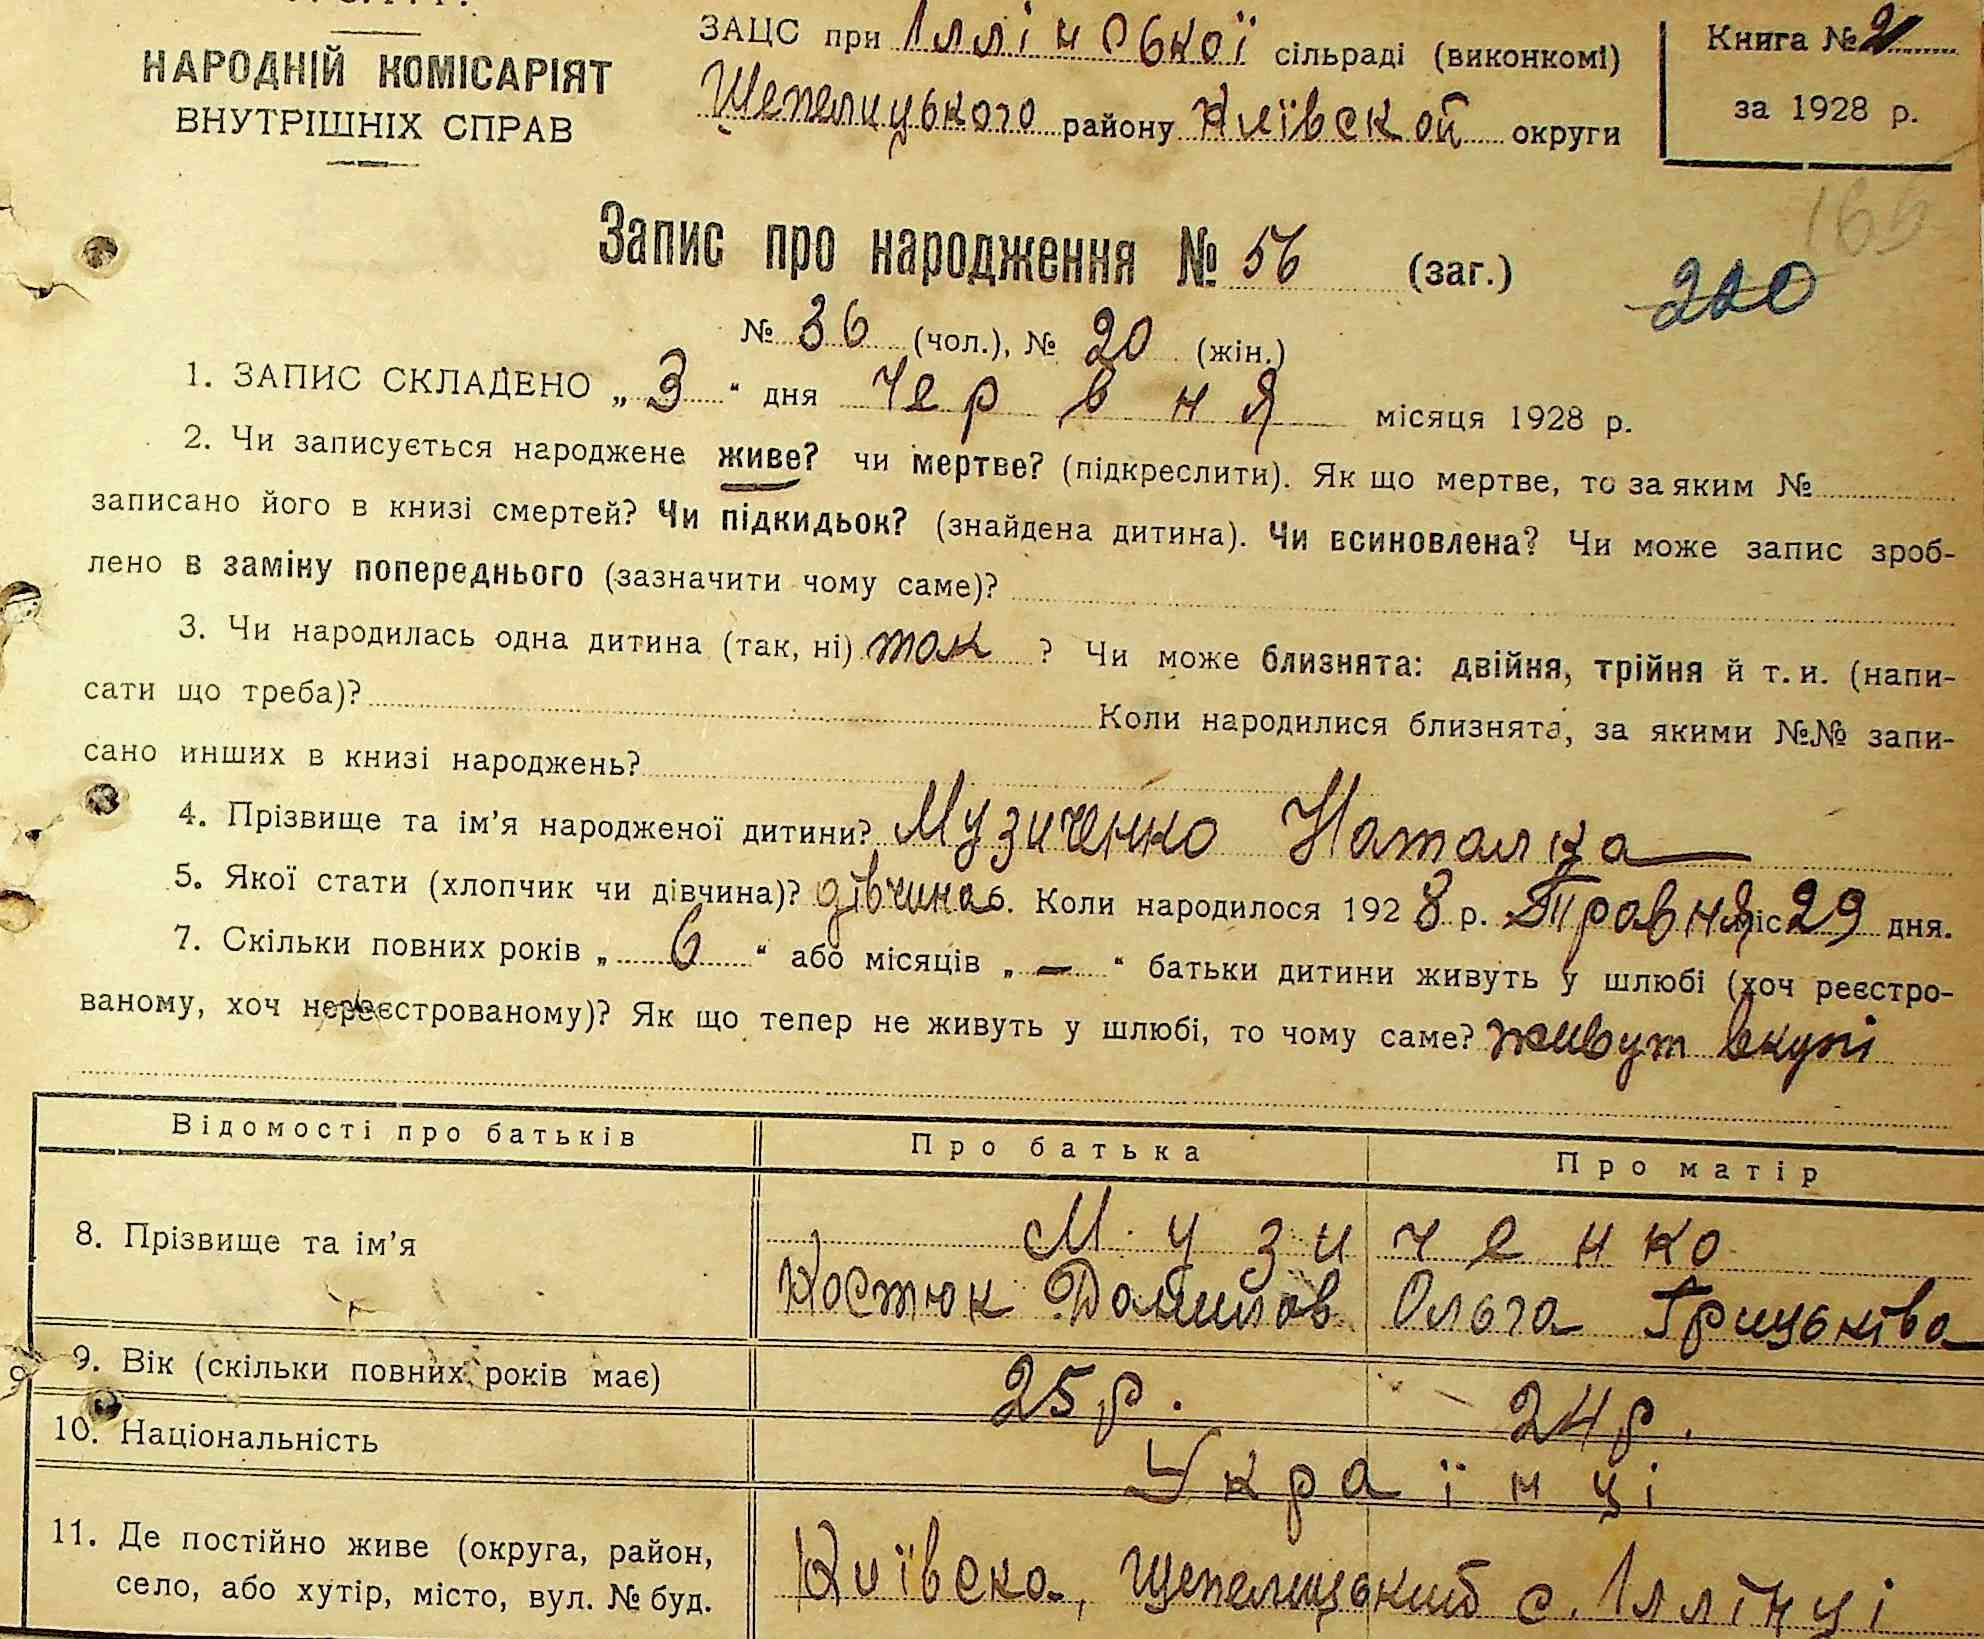 НАРОДНІЙ КОМІСАРІЯТ
ВНУТРІШНІХ СПРАВ
ЗАЦС при Іллінської сільраді (виконкомі)
Шепелицького району Київской округи
Книга № 2
за 1928 р.
166
220
Запис про народження № 56 (заг.)
№ 36 (чол.), № 20 (жін.)
1. ЗАПИС СКЛАДЕНО „ 3 “ дня червня місяця 1928 р.
2. Чи записується народжене живе? чи мертве? (підкреслити). Як що мертве, то за яким №
записано його в книзі смертей? Чи підкидьок? (знайдена дитина). Чи всиновлена? Чи може запис зроб-
лено в заміну попереднього (зазначити чому саме)?
3. Чи народилась одна дитина (так, ні) так ? Чи може близнята: двійня, трійня й т. и. (напи-
сати що треба)? Коли народилися близнята, за якими №№ запи-
сано инших в книзі народжень?
4. Прізвище та ім’я народженої дитини? Музиченко Наталка
5. Якої стати (хлопчик чи дівчина)? дівчина 6. Коли народилося 1928 р. Травня міс 29 дня.
7. Скільки повних років „ 6 “ або місяців „ – “ батьки дитини живуть у шлюбі (хоч реєстро-
ваному, хоч нереєстрованому)? Як що тепер не живуть у шлюбі, то чому саме? живут вкупі
Відомості про батьків Про батька Про матір
8. Прізвище та ім’я Музиченко
Костюк Данилов Ольга Грицьківа
9. Вік (скільки повних років має) 25 р. 24 р.
10. Національність Українці
11. Де постійно живе (округа, район,
село, або хутір, місто, вул. № буд. Київска, Шепелицький с. Іллінці